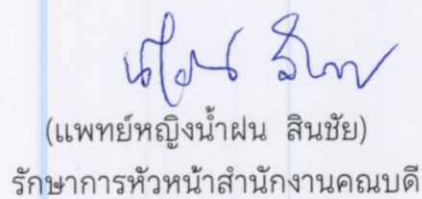 (แพทย์หญิงน้ำฝน สินชัย)
รักษาการหัวหน้าสำนักงานคณบดี